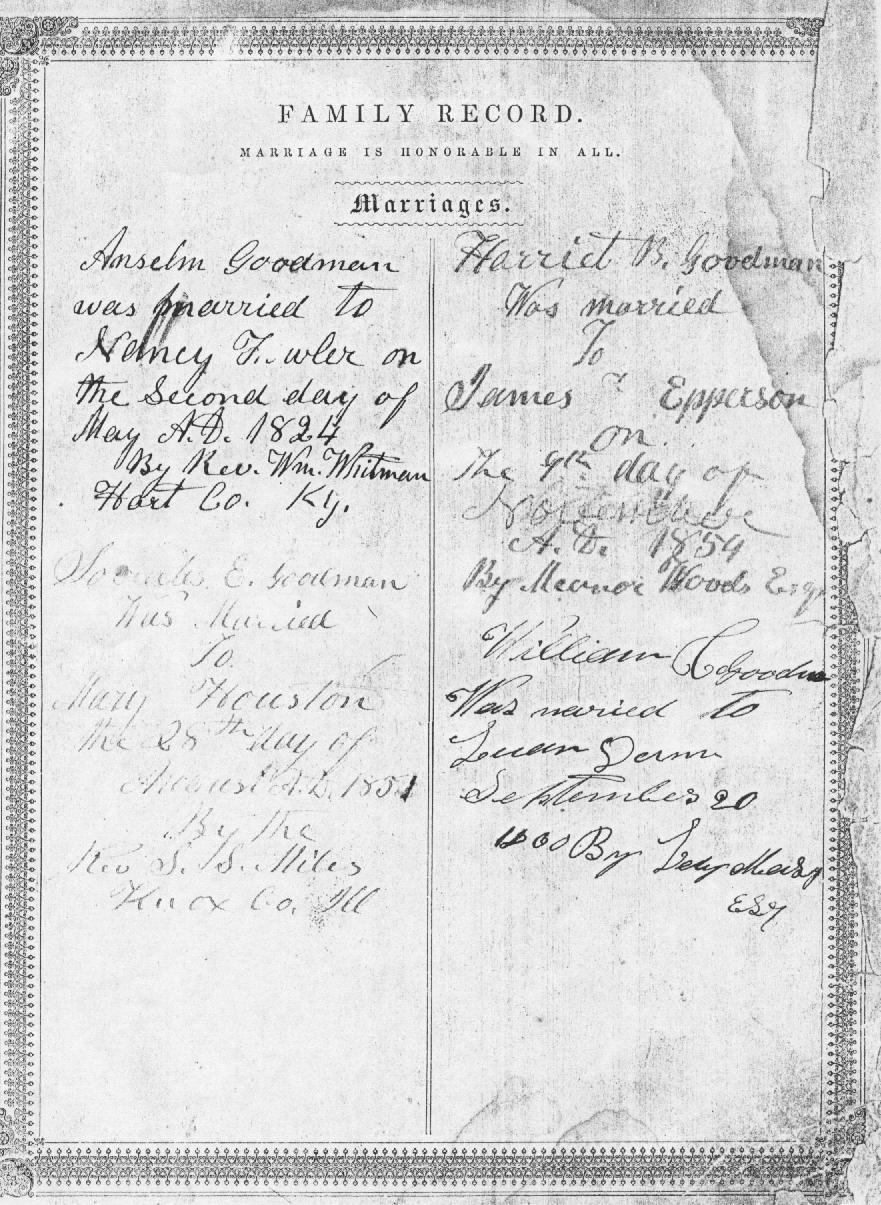 FAMILY RECORD.
MARRIAGE IS HONORABLE IN ALL.
Marriages.
Anselm Goodman
was married to
Nancy Fowler on
the Second day of
May A.D. 1824
By Rev. Wm. Whitman
Hart Co. Ky.
Socrates E. Goodman
Was Married
To
Mary Houston
the 28th day of
August A.D. 1851
By the
Rev S. S. Miles
Knox Co. Ill
Harriet B. Goodman
Was married
To
James F Epperson
on
The 9th day of
November
A.D. 1854
By Meanor Woods Esqr
William C Goodm
Was maried to
September 20
By
Esq